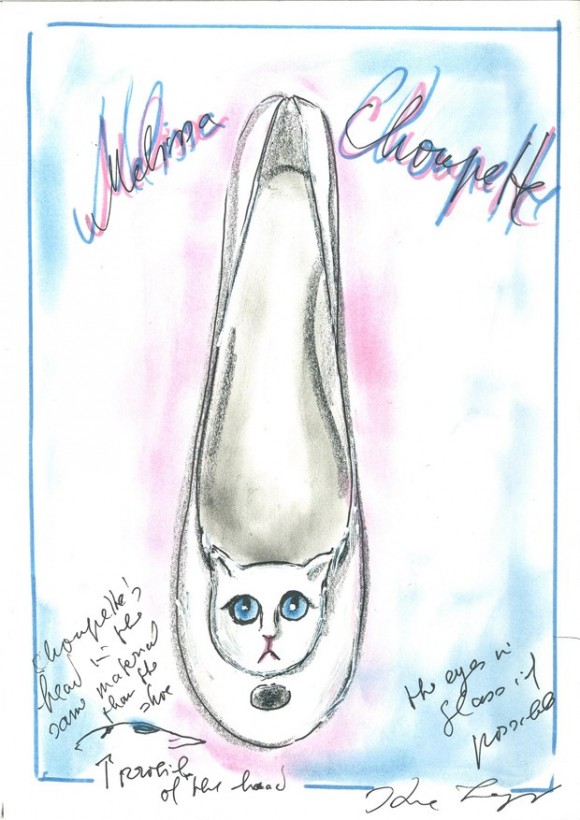 Melissa Choupette
Choupette's
head in the
same material
than the
shoe
the eyes in
glass if
possible
↑ profile
of the head